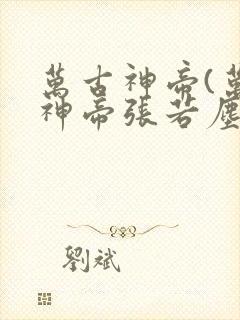 萬古神帝(萬
神帝張若塵
劉斌